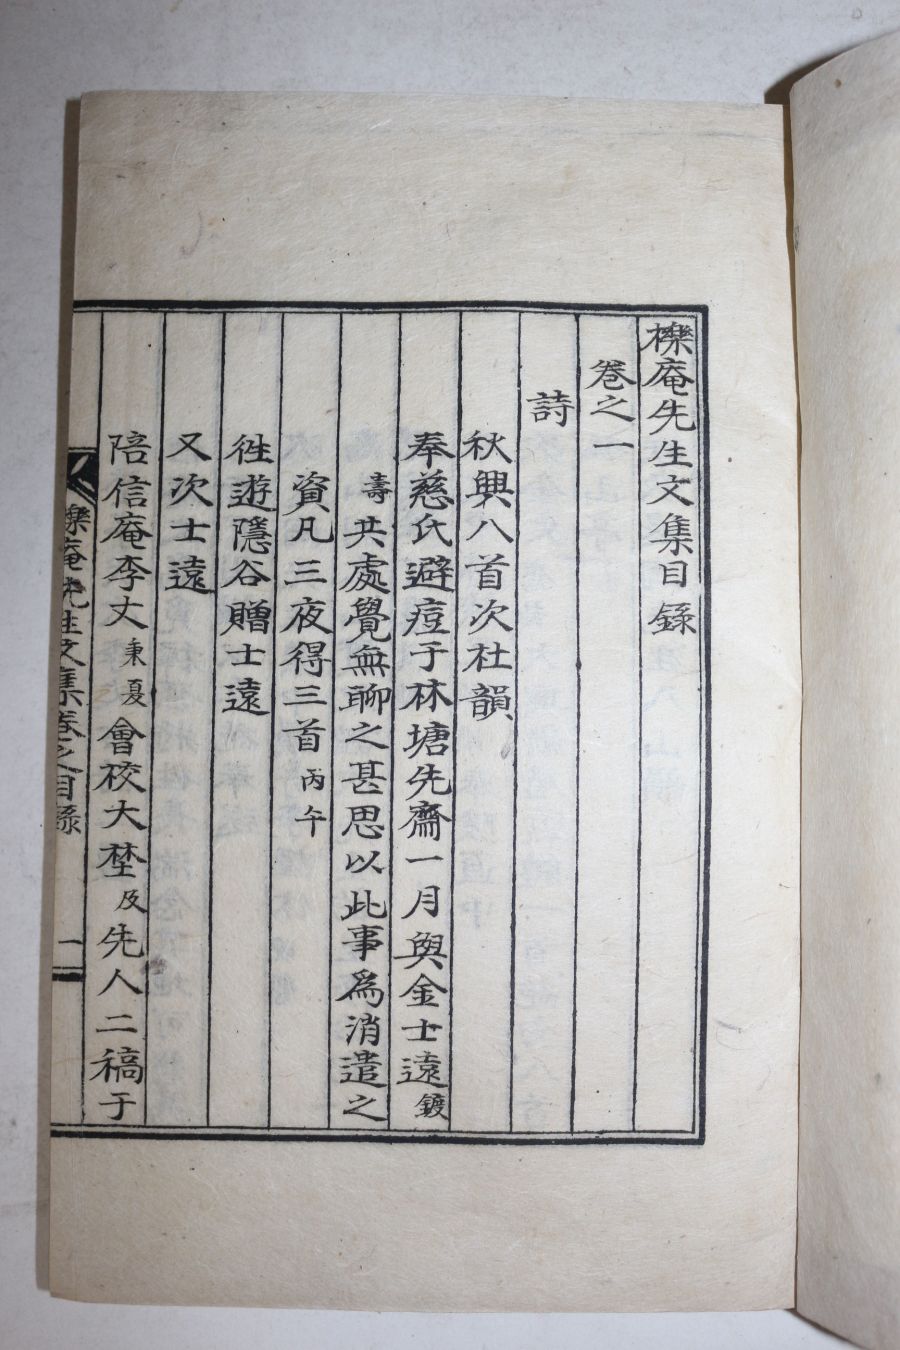 櫟庵先生文集目錄
卷之一
詩
秋興八首次杜韻
奉慈氏避痘于林塘先齋一月與金士遠鍍
壽共處覺無聊之甚思以此事爲消遣之
資凡三夜得三首丙午
徃遊隱谷贈士遠
又次士遠
陪信庵李丈秉夏會校大埜及先人二稿于
櫟庵先生文集卷之目錄
一